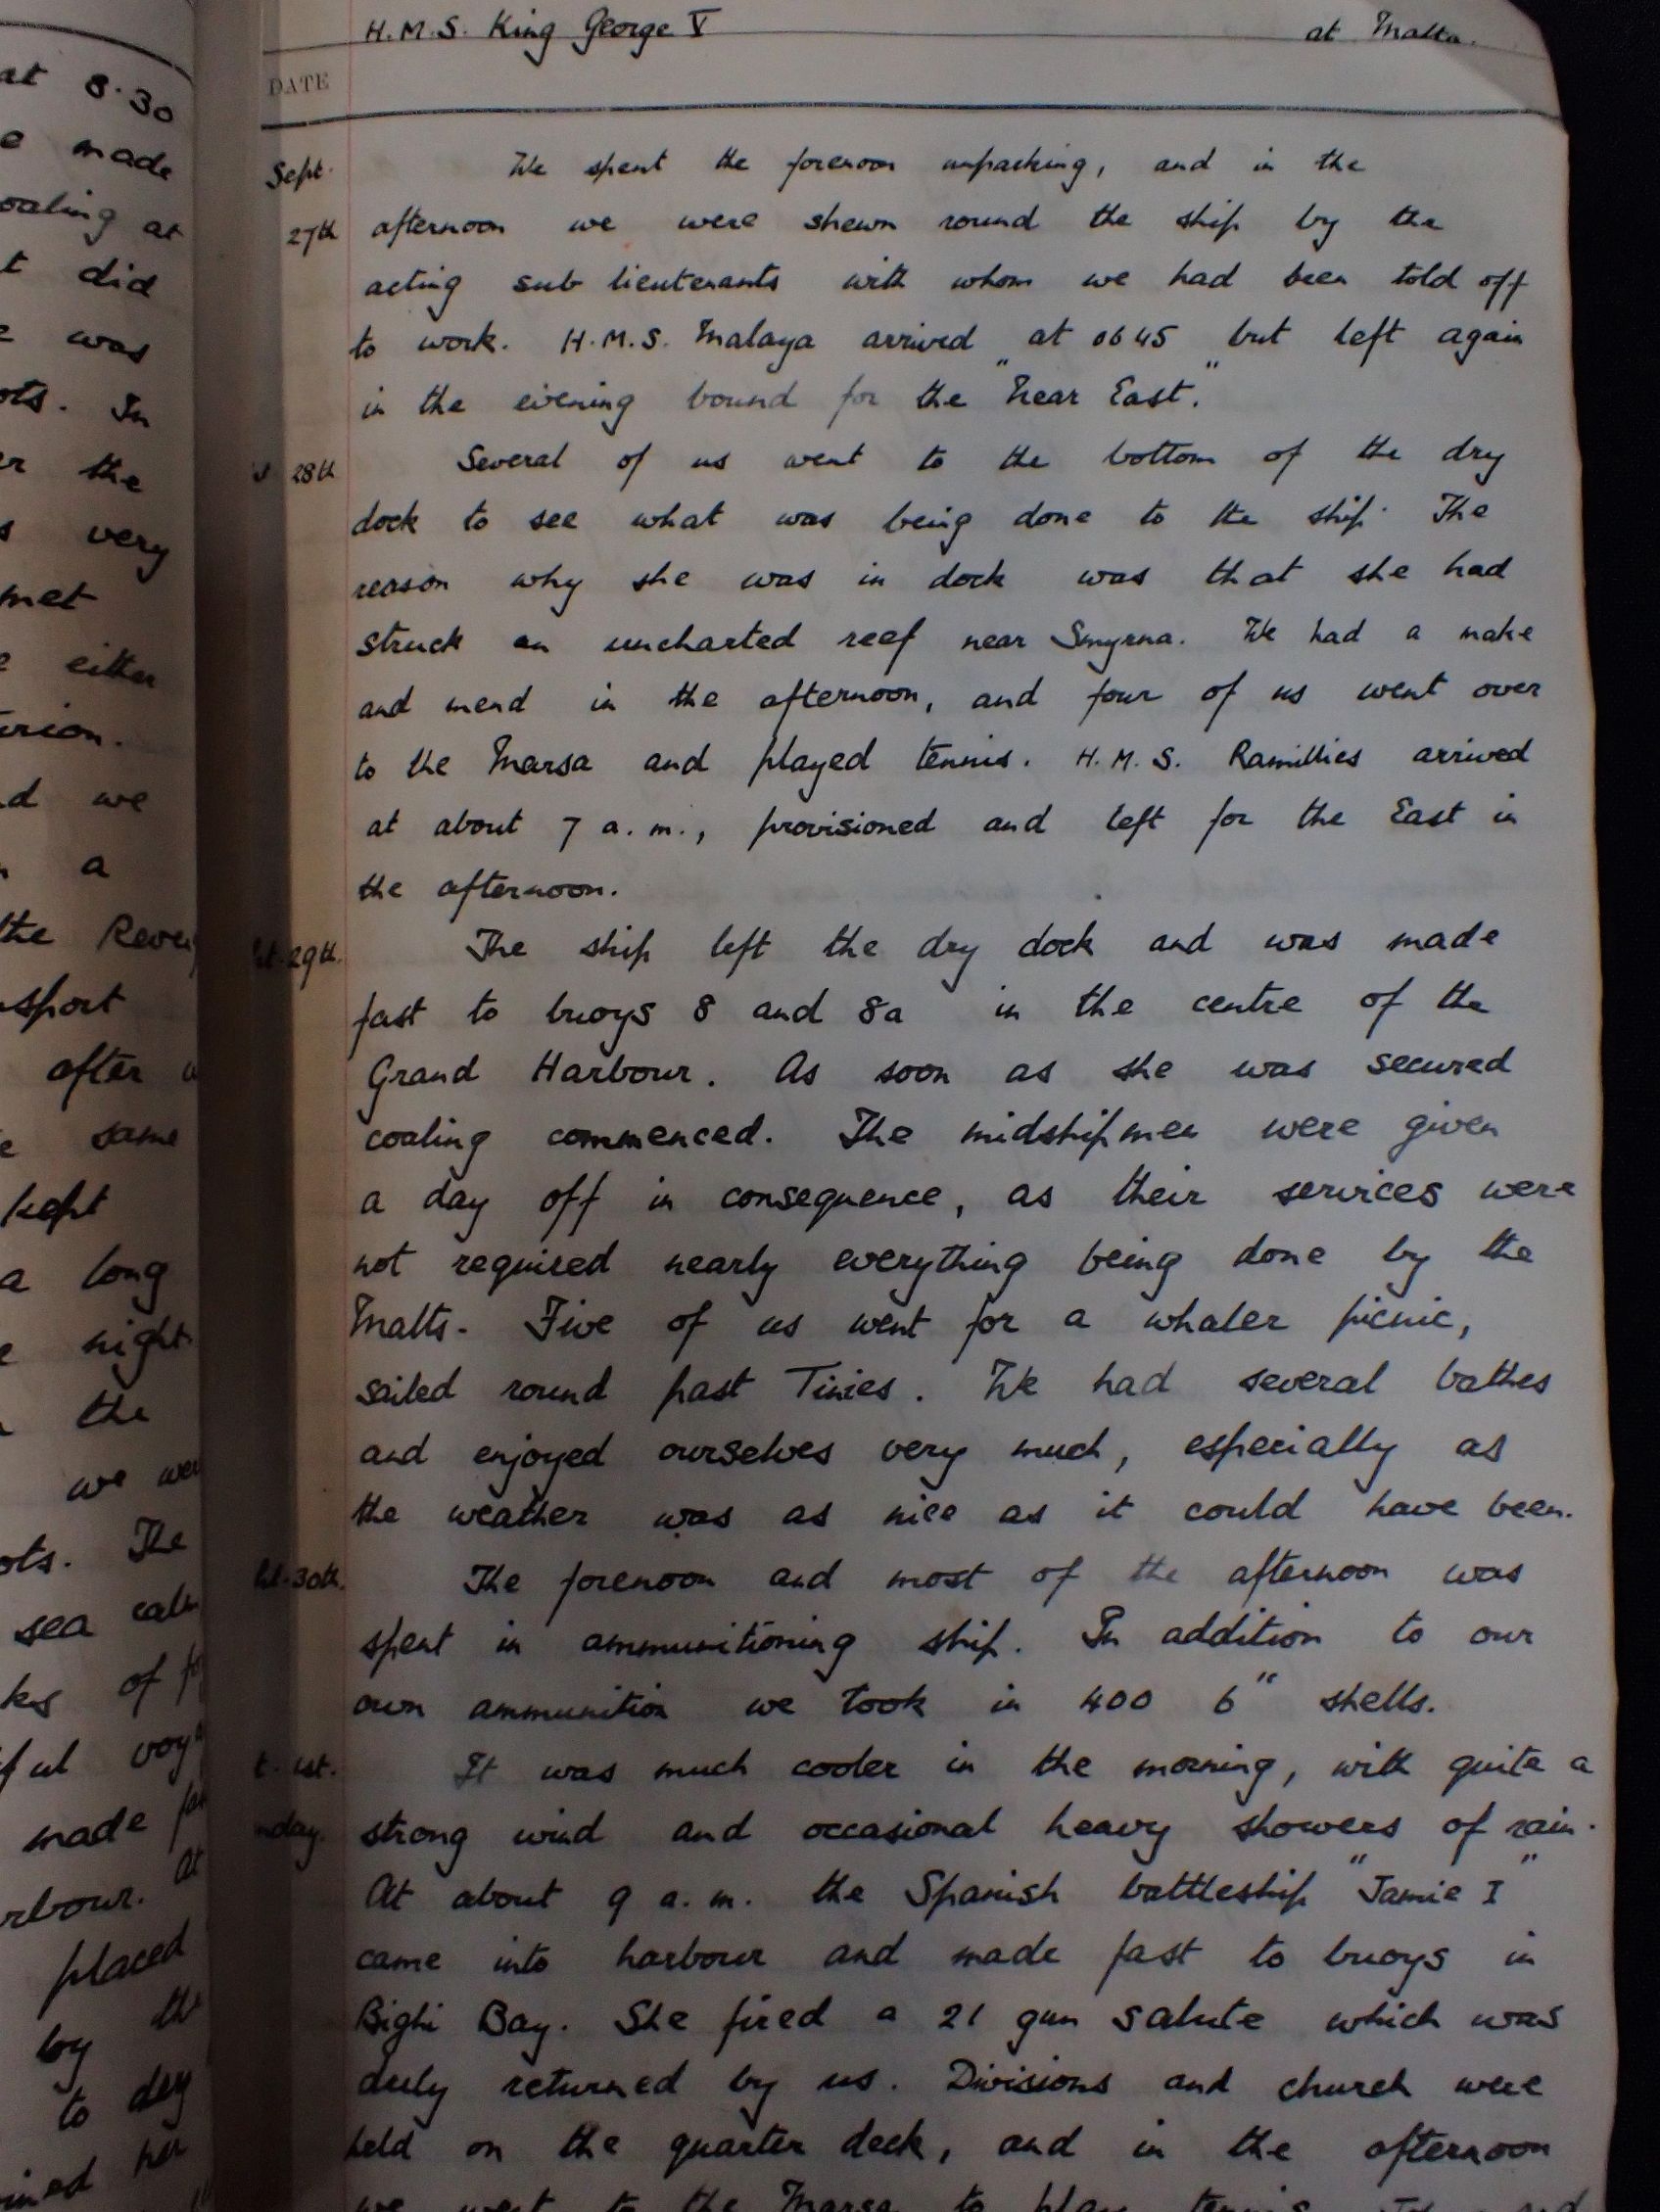 at 8.30
made
coaling at
did
was
In
the
very
met
either
we
a
the
after
same
kept
a long
night.
the
we
The
sea
of
made
At
placed
by the
to
her
H.M.S. King George V at Malta.
DATE
Sept. We spent the forenoon unpacking, and in the
27th afternoon we were shewn round the ship by the
acting sub lieutenants with whom we had been told off
to work. H.M.S. Malaya arrived at 0645 but left again
in the evening bound for the "Near East."
28th Several of us went to the bottom of the dry
dock to see what was being done to the ship. The
reason why she was in dock was that she had
struck an uncharted reef near Smyrna. We had a make
and mend in the afternoon, and four of us went over
to the Marsa and played tennis. H.M.S. Ramillies arrived
at about 7 a.m., provisioned and left for the East in
the afternoon.
29th. The ship left the dry dock and was made
fast to buoys 8 and 8a in the centre of the
Grand Harbour. As soon as she was secured
coaling commenced. The midshipmen were given
a day off in consequence, as their services were
not required nearly everything being done by the
Malts. Five of us went for a whaler picnic,
sailed round past Tinies. We had several bathes
and enjoyed ourselves very much, especially as
the weather was as nice as it could have been.
30th. The forenoon and most of the afternoon was
spent in ammunitioning ship. In addition to our
own ammunition we took in 400 6" shells.
1st. It was much cooler in the morning, with quite a
strong wind and occasional heavy showers of rain.
At about 9 a.m. the Spanish battleship "Jamie I"
came into harbour and made fast to buoys in
Bighi Bay. She fired a 21 gun salute which was
duly returned by us. Divisions and church were
held on the quarter deck, and in the afternoon
we went to the Marsa to play tennis.